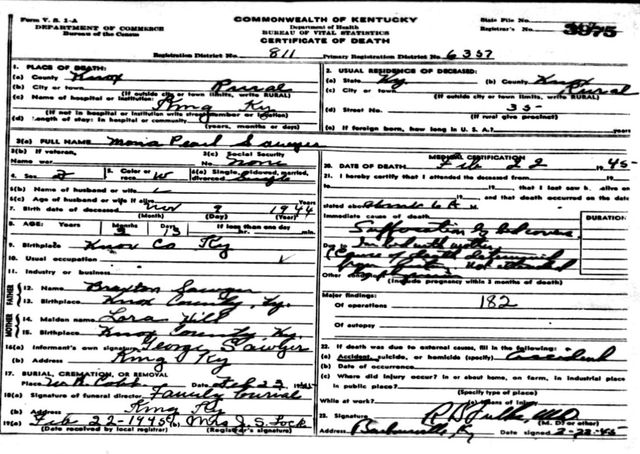 Form V. S. 1-A
DEPARTMENT OF COMMERCE
Bureau of the Census
COMMONWEALTH OF KENTUCKY
Department of Health
BUREAU OF VITAL STATISTICS
CERTIFICATE OF DEATH
State File No.
Registrar's No. 3975
Registration District No. 811
Primary Registration District No. 6357
1. PLACE OF DEATH:
(a) County Knox
(b) City or town Rural
(If outside city or town limits, write RURAL)
(c) Name of hospital or institution:
King Ky
(If not in hospital or institution write street number or location)
(d) Length of stay: In hospital or community
(years, months or days)
2. USUAL RESIDENCE OF DECEASED:
(a) State Ky (b) County Knox
(c) City or town Rural
(If outside city or town limits, write RURAL)
(d) Street No. 35-
(If rural give precinct)
(e) If foreign born, how long in U. S. A.?
3(a) FULL NAME Mona Pearl Sawyer
3(b) If veteran,
Name war
3(c) Social Security
No. None
4. Sex F 5. Color or race W 6(a) Single, widowed, married, divorced Single
6(b) Name of husband or wife
6(c) Age of husband or wife if alive
7. Birth date of deceased Nov 9 1944
(Month) (Day) (Year)
8. AGE: Years Months 3 Days 13 If less than one day
hr. min.
9. Birthplace Knox Co Ky
10. Usual occupation
11. Industry or business
FATHER
12. Name Braxton Sawyer
13. Birthplace Knox County, Ky.
MOTHER
14. Maiden name Lora Hill
15. Birthplace Knox County Ky.
16(a) Informant's own signature George Sawyer
(b) Address King Ky
17. BURIAL, CREMATION, OR REMOVAL
Place Date Feb 23 1945
18(a) Signature of funeral director Family burial
(b) Address King Ky
19(a) Feb 22-1945 (b) Mrs J. S. Lock
(Date received by local registrar) (Registrar's signature)
MEDICAL CERTIFICATION
20. DATE OF DEATH Feb 22 1945-
21. I hereby certify that I attended the deceased from
19 , to 19 , that I last saw h alive on
19 , and that death occurred on the date
stated above at about 6 A m.
Immediate cause of death
DURATION
Suffocation by bed covers
Due to In bed with mother
(Cause of death determined
from Not attended
Other conditions
(Include pregnancy within 3 months of death)
Major findings:
Of operations 182
Of autopsy
22. If death was due to external causes, fill in the following:
(a) Accident, suicide, or homicide (specify) Accident
(b) Date of occurrence
(c) Where did injury occur? In or about home, on farm, in industrial place
in public place?
(Specify type of place)
While at work? of injury
23. Signature M.D.
(M. D. or other)
Address Barbourville, Ky Date signed 2-22-45